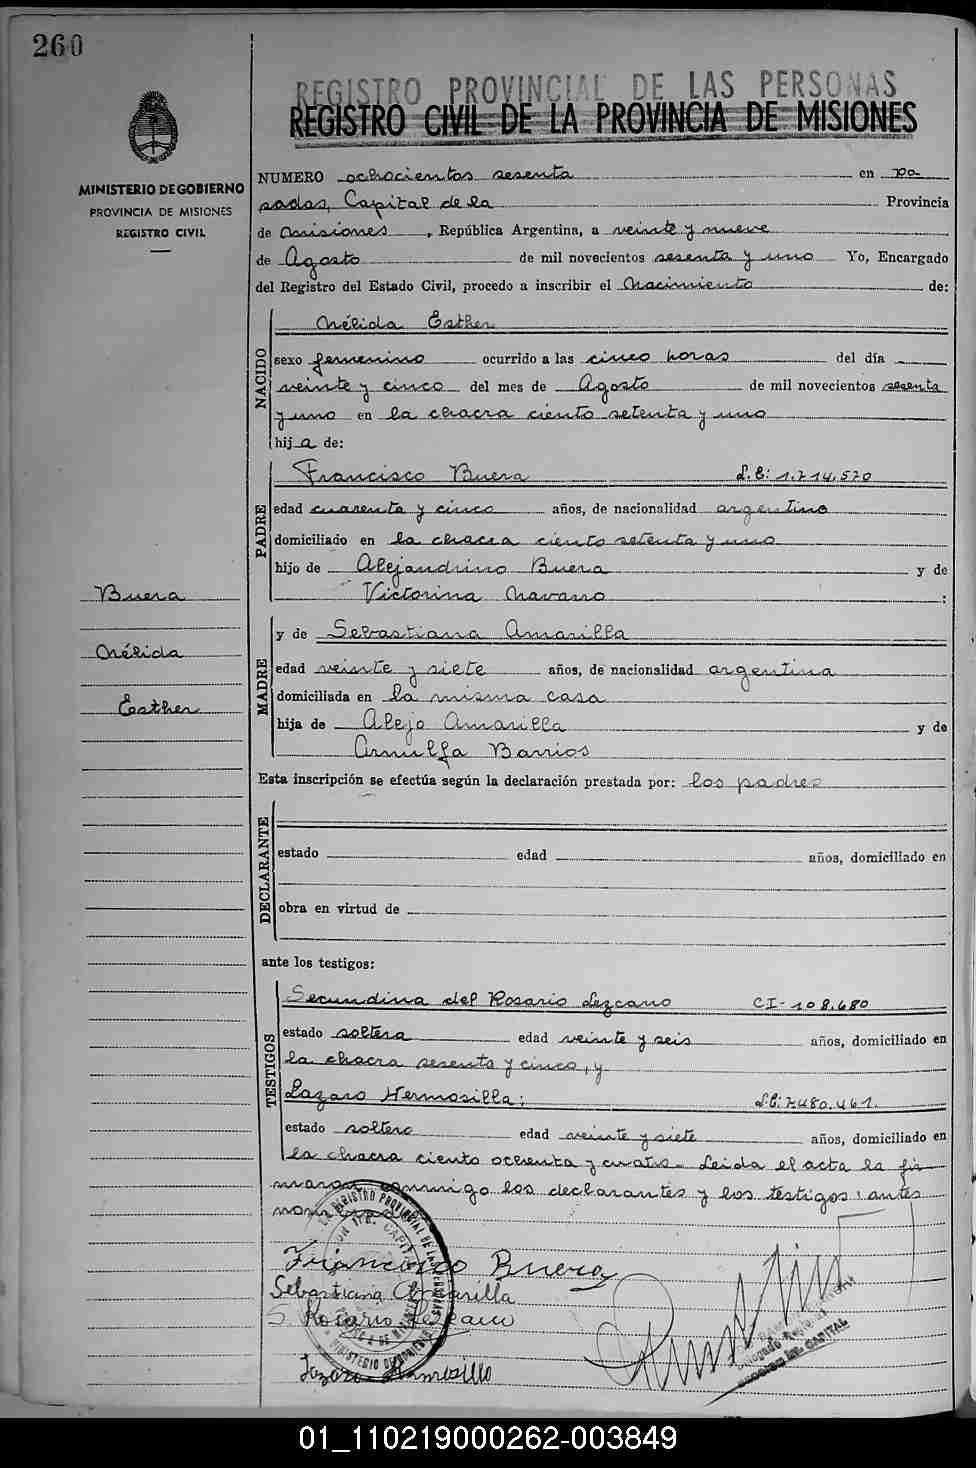 260
REGISTRO PROVINCIAL DE LAS PERSONAS
REGISTRO CIVIL DE LA PROVINCIA DE MISIONES
MINISTERIO DE GOBIERNO
PROVINCIA DE MISIONES
REGISTRO CIVIL
NUMERO ochocientos sesenta en Po-
sadas, Capital de la Provincia
de Misiones, República Argentina, a veinte y nueve
de Agosto de mil novecientos sesenta y uno Yo, Encargado
del Registro del Estado Civil, procedo a inscribir el Nacimiento de:
NACIDO
Nélida Esther
sexo femenino ocurrido a las cinco horas del día
veinte y cinco del mes de Agosto de mil novecientos sesenta
y uno en la chacra ciento setenta y uno
hija de:
PADRE
Francisco Buera L.E: 1.714.570
edad cuarenta y cinco años, de nacionalidad argentino
domiciliado en la chacra ciento setenta y uno
hijo de Alejandrino Buera y de
Victorina Navarro :
Buera
Nélida
Esther
MADRE
y de Sebastiana Amarilla
edad veinte y siete años, de nacionalidad argentina
domiciliada en la misma casa
hija de Alejo Amarilla y de
Arnulfa Barrios
Esta inscripción se efectúa según la declaración prestada por: los padres
DECLARANTE
estado edad años, domiciliado en
obra en virtud de
ante los testigos:
TESTIGOS
Secundina del Rosario Lezcano CI-108.680
estado soltera edad veinte y seis años, domiciliado en
la chacra sesenta y cinco, y
Lazaro Hermosilla; L.E: 7.480.461.
estado soltero edad veinte y siete años, domiciliado en
la chacra ciento ochenta y cuatro. Leida el acta la fir-
maron conmigo los declarantes y los testigos antes
Francisco Buera
Sebastiana Amarilla
S. Rosario Lezcano
Lazaro Hermosilla
CAPITAL
01_110219000262-003849